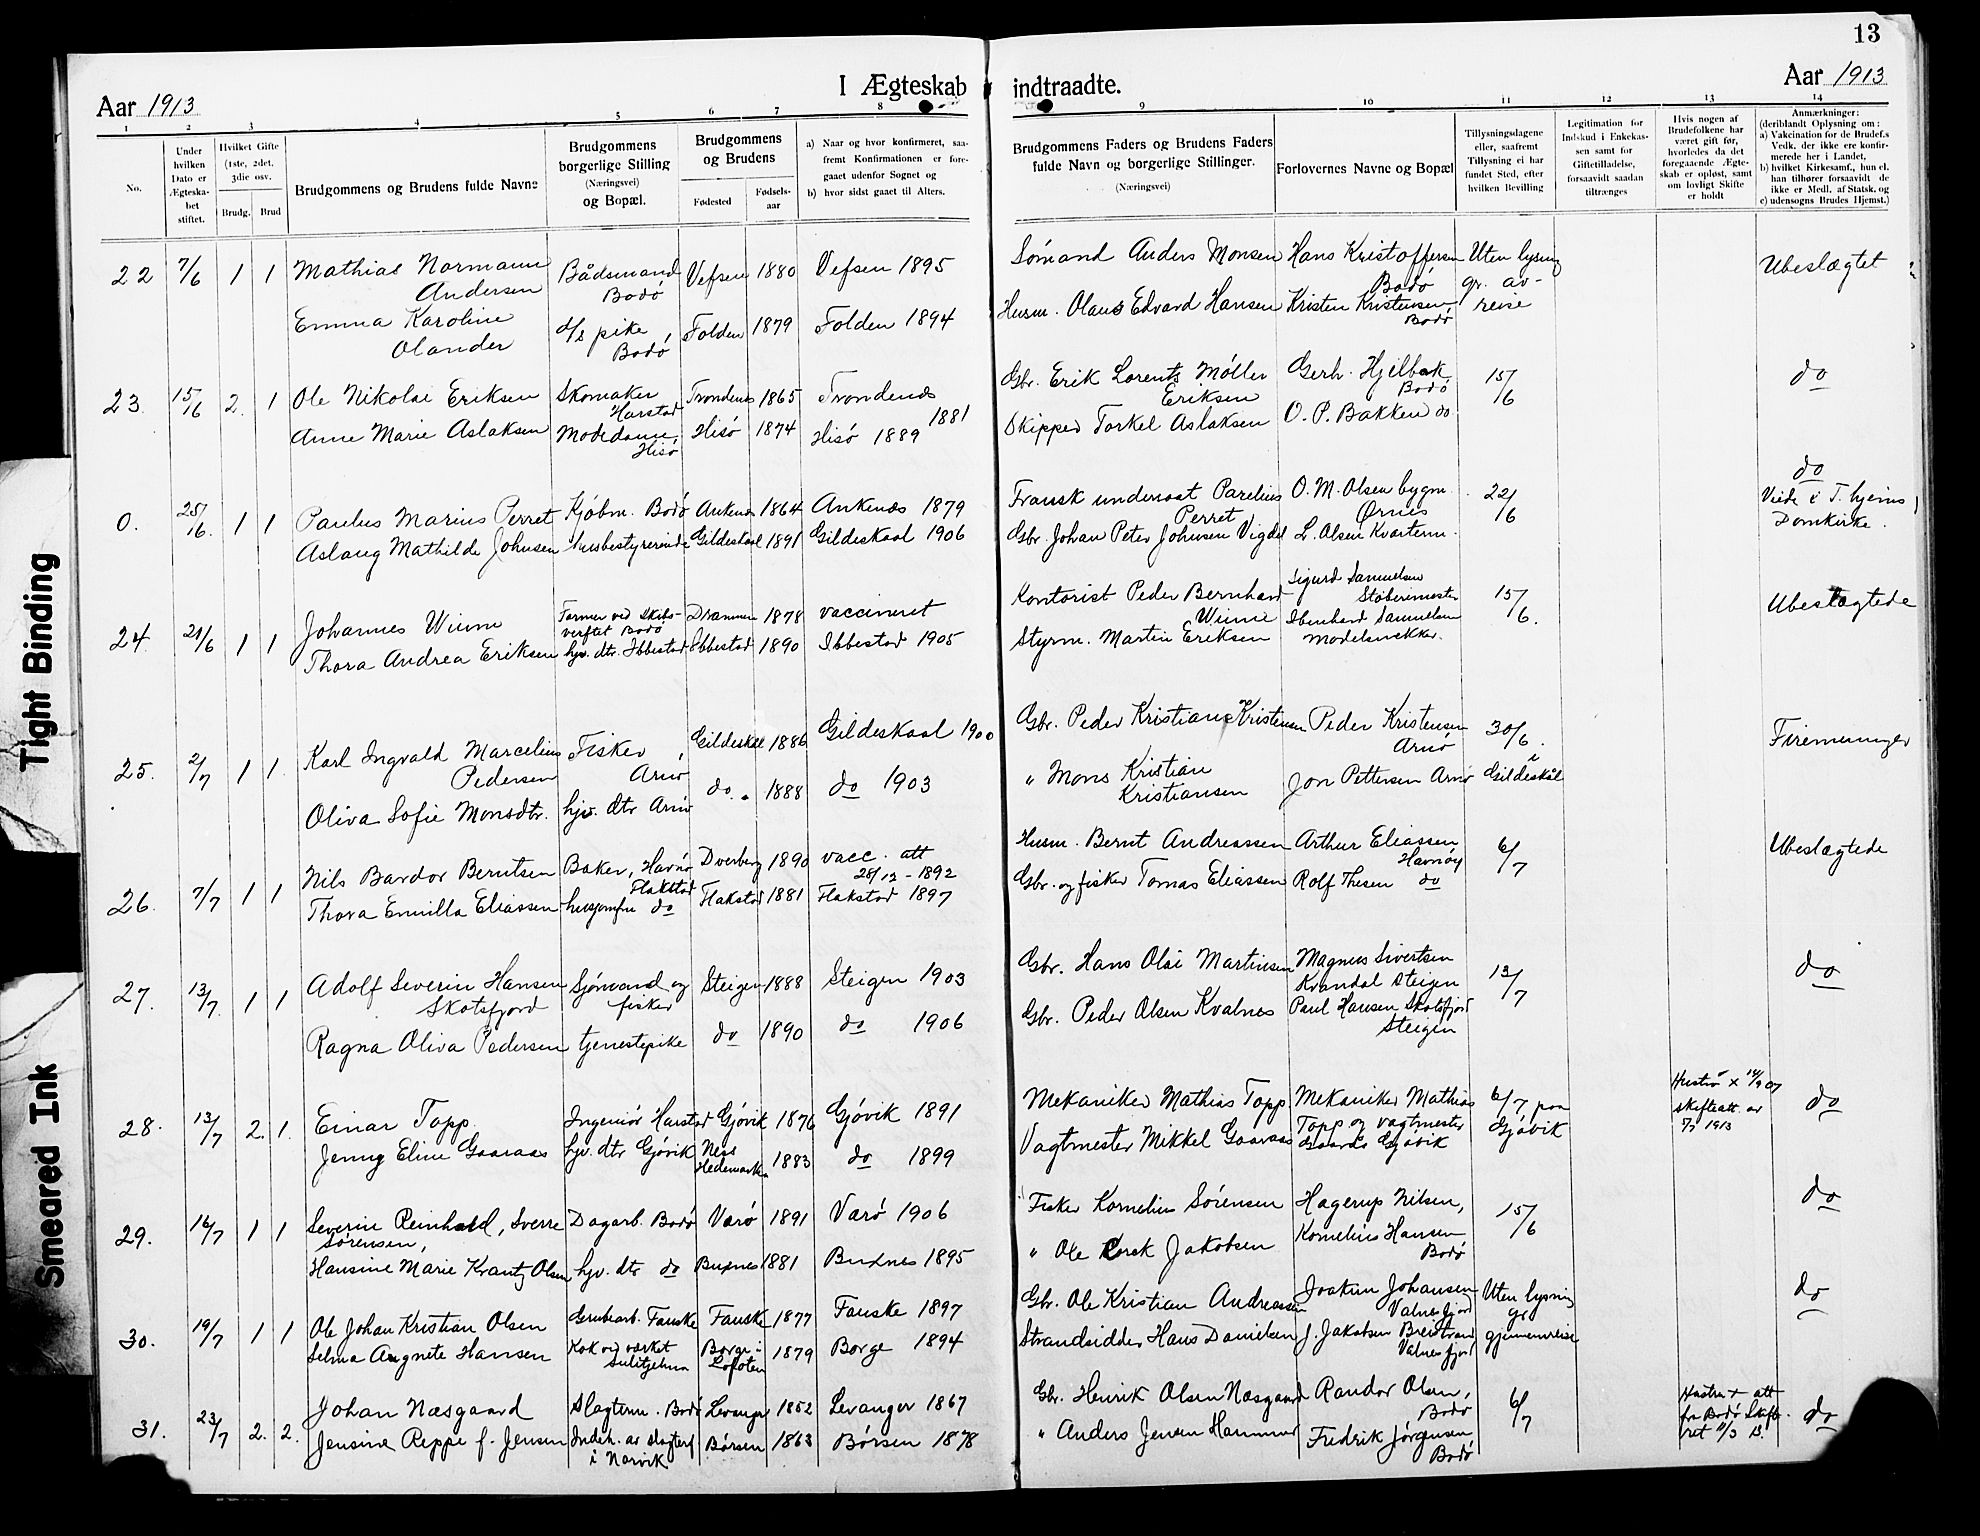 13
Aar 1913
I Ægteskab indtraadte.
Aar 1913
1 2 3 4 5 6 7 8 9 10 11 12 13 14
No.
Under hvilken Dato er Ægteskabet stiftet.
Hvilket Gifte (1ste, 2det, 3die osv.
Brudg. Brud
Brudgommens og Brudens fulde Navne
Brudgommens borgerlige Stilling (Næringsvei) og Bopæl.
Brudgommens og Brudens
Fødested
Fødselsaar
a) Naar og hvor konfirmeret, saafremt Konfirmationen er foregaaet udenfor Sognet og
b) hvor sidst gaaet til Alters.
Brudgommens Faders og Brudens Faders fulde Navn og borgerlige Stillinger.
(Næringsvei)
Forlovernes Navne og Bopæl
Tillysningsdagene eller, saafremt Tillysning ei har fundet Sted, efter hvilken Bevilling
Legitimation for Indskud i Enkekassen samt for Giftetilladelse, forsaavidt saadan tiltrænges
Hvis nogen af Brudefolkene har været gift før, hvorledes da det foregaaende Ægteskab er opløst, samt om lovligt Skifte er holdt
Anmærkninger: (deriblandt Oplysning om: a) Vakcination for de Brudef.s Vedk. der ikke ere konfirmerede her i Landet, b) hvilket Kirkesamf., hun el. han tilhører forsaavidt de ikke er Medl. af Statsk. og c) udensogns Brudes Hjemst.)
22 7/6 1 1 Mathias Normann Andersen Bådsmand Bodø Vefsen 1880 Vefsen 1895 Sømand Anders Monsen Hans Kristoffersen Bodø Uten lysning gr. avreise Ubeslægtet
Emma Karoline Olander d/s pike, Bodø Folden 1879 Folden 1894 Husm. Olaus Edvard Hansen Kristen Kristensen Bodø
23. 15/6 2. 1 Ole Nikolai Eriksen Skomaker Harstad Trondenes 1865 Trondenes 1881 Gbr. Erik Lorents Møller Eriksen Gerh. Hjelbak Bodø 15/6 do
Anne Marie Aslaksen Modedame, Hisø Hisø 1874 Hisø 1889 Skipper Torkel Aslaksen O. P. Bakken do.
0. 25/6. 1 1 Paulus Marius Perret Kjøbm. Bodø Ankenes 1864 Ankenes 1879 Fransk undersåt Parelius Perret O. M. Olsen bygm. Ørnes 22/6 do Viede i T. hjems Domkirke.
Aslaug Mathilde Johnsen husbestyrerinde Gildeskaal 1891 Gildeskaal 1906 Gbr. Johan Peter Johnsen Vigdel L. Olsen Kvarterm.
24. 21/6 1 1 Johannes Wiime Former ved Skibsverftet Bodø Drammen 1878 vaccineret Kontorist Peder Bernhard Wiime Sigurd Samuelsen Støberimester 15/6. Ubeslægtede
Thora Andrea Eriksen hjv. dtr. Ibbestad Ibbestad 1890 Ibbestad 1905 Styrm. Martin Eriksen Ibenhard Samuelsen modelsnekker.
25. 2/7 1 1. Karl Ingvald Marcelius Pedersen Fisker, Arnø Gildeskål 1886 Gildeskaal 1900 Gbr. Peder Kristian Kristensen Peder Kristensen Arnø 30/6. i Gildeskål Firemenninger
Oliva Sofie Monsdtr. hjv. dtr Arnø do. 1888 do 1903 " Mons Kristian Kristiansen Jon Pettersen Arnø
26. 7/7 1 1 Nils Bardor Berntsen Baker, Havnø Flakstad Dverberg 1890 vacc. att 28/12 - 1892 Husm. Bernt Andreassen Arthur Eliassen Havnøy 6/7 Ubeslægtede
Thora Emilla Eliassen husjomfru do Flakstad 1881 Flakstad 1897 Gbr. og fisker Tomas Eliassen Rolf Thesen do
27. 13/7. 1 1 Adolf Severin Hansen Skotsfjord Sjømand og fisker Steigen 1888 Steigen 1903 Gbr. Hans Olai Martinsen Magnus Sivertsen Kvandal Steigen 13/7 do
Ragna Oliva Pedersen tjenestepike do 1890 do 1906 Gbr. Peder Olsen Kvalnes Paul Hansen Skotsfjord Steigen
28. 13/7 2. 1. Einar Topp Ingeniør Harstad Gjøvik 1876 Gjøvik 1891 Mekaniker Mathias Topp Mekaniker Mathias Topp og vagtmester Gaarås Gjøvik 6/7 paa Gjøvik Hustru x 14/9 07 skifteatt. av 7/7 1913 do
Jenny Eline Gaaraas hjv. dtr Gjøvik Ness Hedemarken 1883 do 1899 Vagtmester Mikkel Gaaraas
29. 16/7 1 1 Severin Reinhold, Sverre Sørensen, Dagarb. Bodø Værø 1891 Værø 1906 Fisker Kornelius Sørensen Hagerup Nilsen, 15/6 do
Hansine Marie Krantz Olsen hjv. dtr do Buxnes 1881 Buxnes 1895 " Ole Korsk Jakobsen Kornelius Hansen Bodø
30. 19/7 1 1 Ole Johan Kristian Olsen Grubearb. Fauske Fauske 1877 Fauske 1897 Gbr. Ole Kristian Andreassen Joakim Johansen Valnesfjord Uten lysning gr gjennemreise do
Selma Angnete Hansen Kok ved verket Sulitjelma Borge i Lofoten 1879 Borge 1894 Strandsidder Hans Danielsen J. Jakobsen Breistrand Valnesfjord
31. 23/7 2. 2. Johan Næsgaard Slagterm. Bodø Levanger 1852 Levanger 1867 Gbr. Henrik Olsen Næsgaard Randor Olsen, Bodø 6/7 Hustru + att fra Bodø Skifteret 11/3 13. do
Jensine Reppe f. Jensen Indeh. av slagterf. i Narvik Børsen 1863 Børsen 1878 " Anders Jensen Hammer Fredrik Jørgensen Bodø
Tight Binding
Smeared Ink